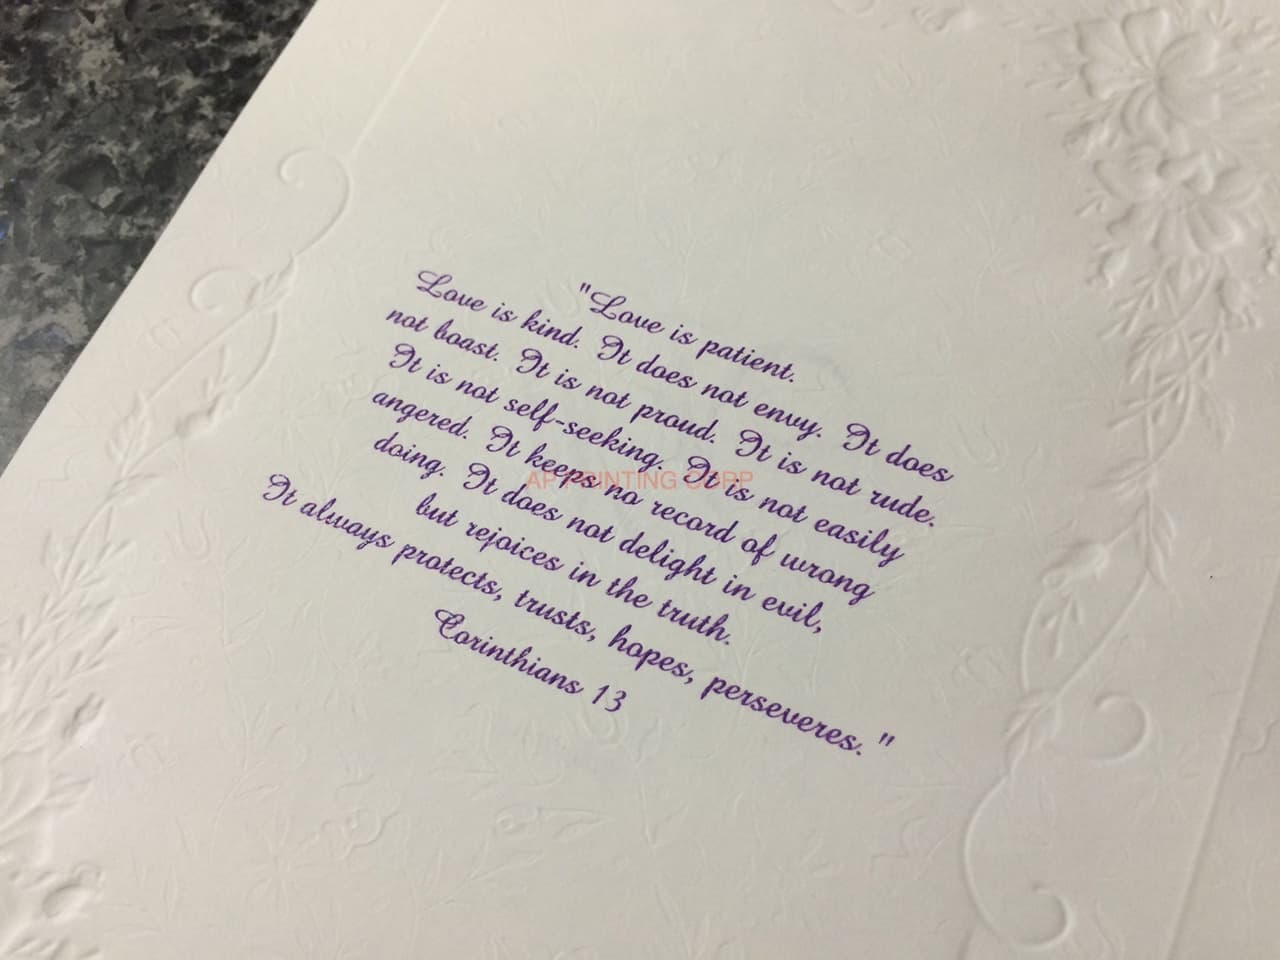 "Love is patient.
Love is kind. It does not envy. It does
not boast. It is not proud. It is not rude.
It is not self-seeking. It is not easily
angered. It keeps no record of wrong
doing. It does not delight in evil,
but rejoices in the truth.
It always protects, trusts, hopes, perseveres."
Corinthians 13
AP PRINTING CORP